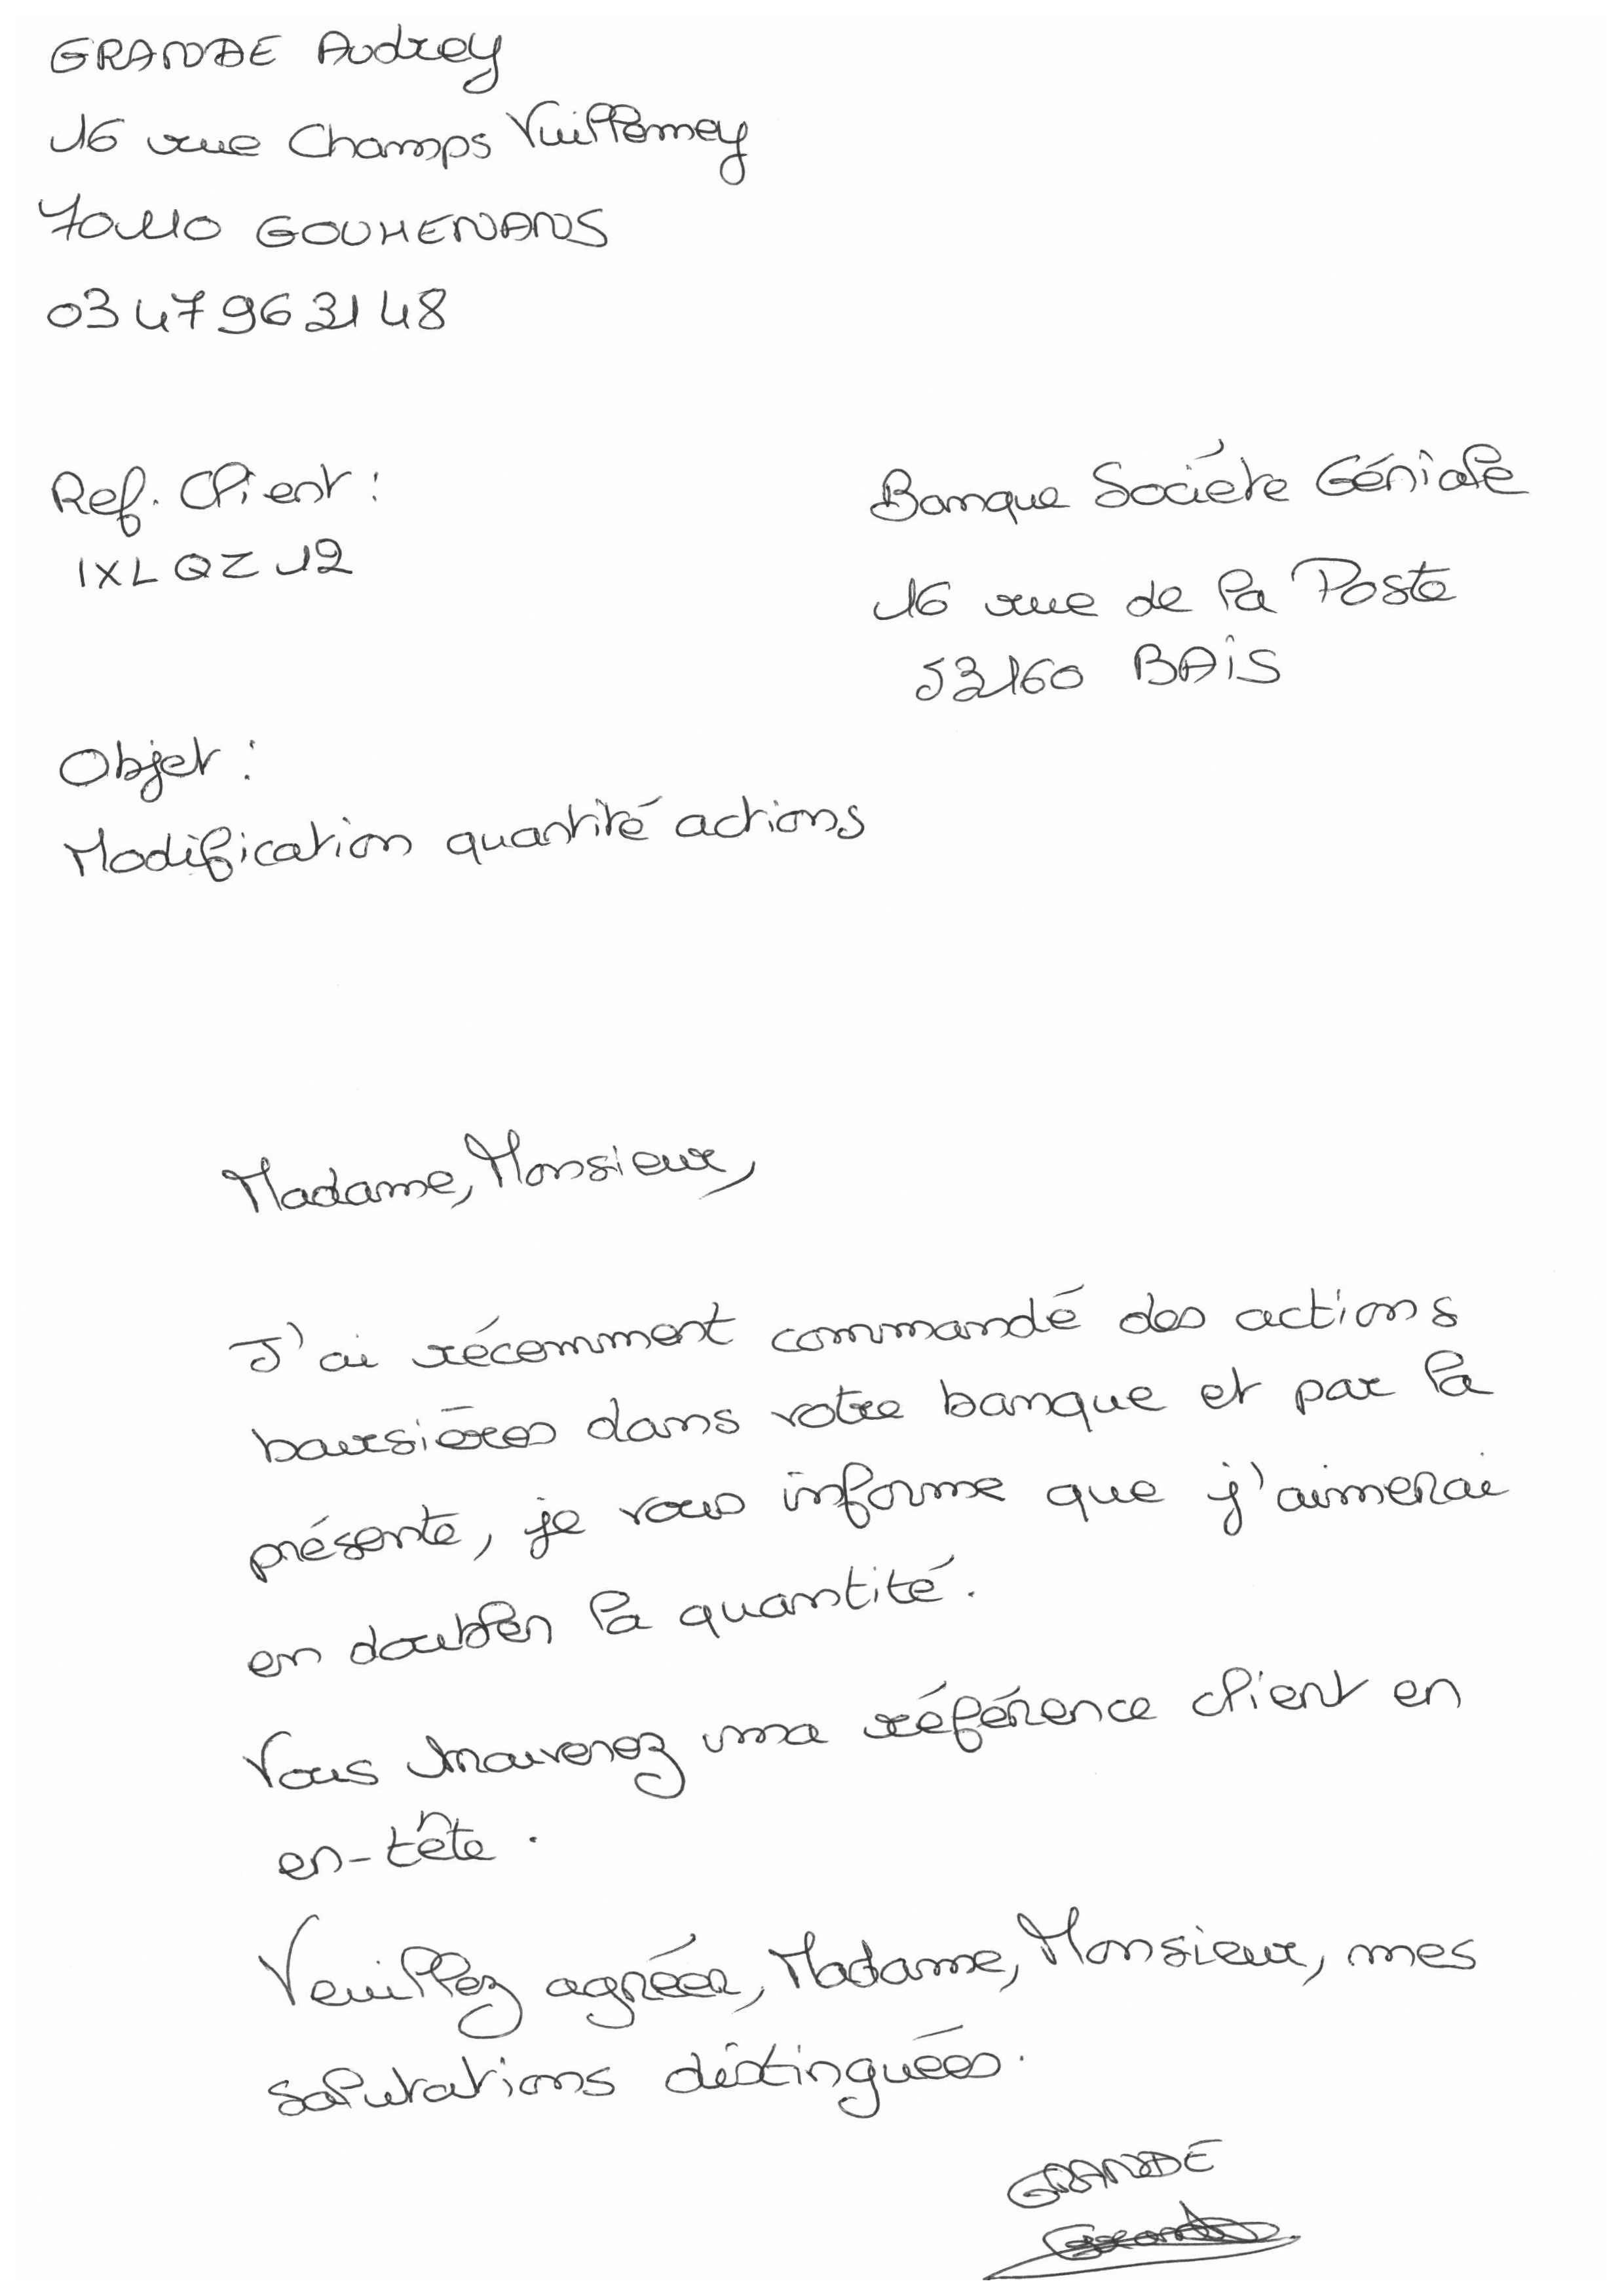 GRANDE Audrey
16 rue Champs Vuillemey
70110 GOUHENANS
03 47 96 31 48
Ref. Client :
IXLQZ12
Banque Société Géniale
16 rue de la Poste
53160 BAÎS
Objet :
Modification quantité actions
Madame, Monsieur,
J'ai récemment commandé des actions
boursières dans votre banque et par la
présente, je vous informe que j'aimerai
en doubler la quantité.
Vous trouverez ma référence client en
en-tête.
Veuillez agréer, Madame, Monsieur, mes
salutations distinguées.
GRANDE